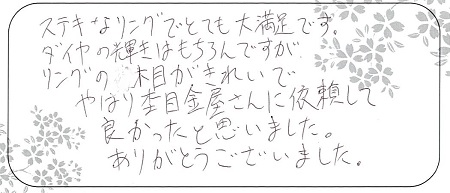 ステキなリングでとても大満足です。
ダイヤの輝きはもちろんですが
リングの 木目がきれいで
やはり杢目金屋さんに依頼して
良かったと思いました。
ありがとうございました。